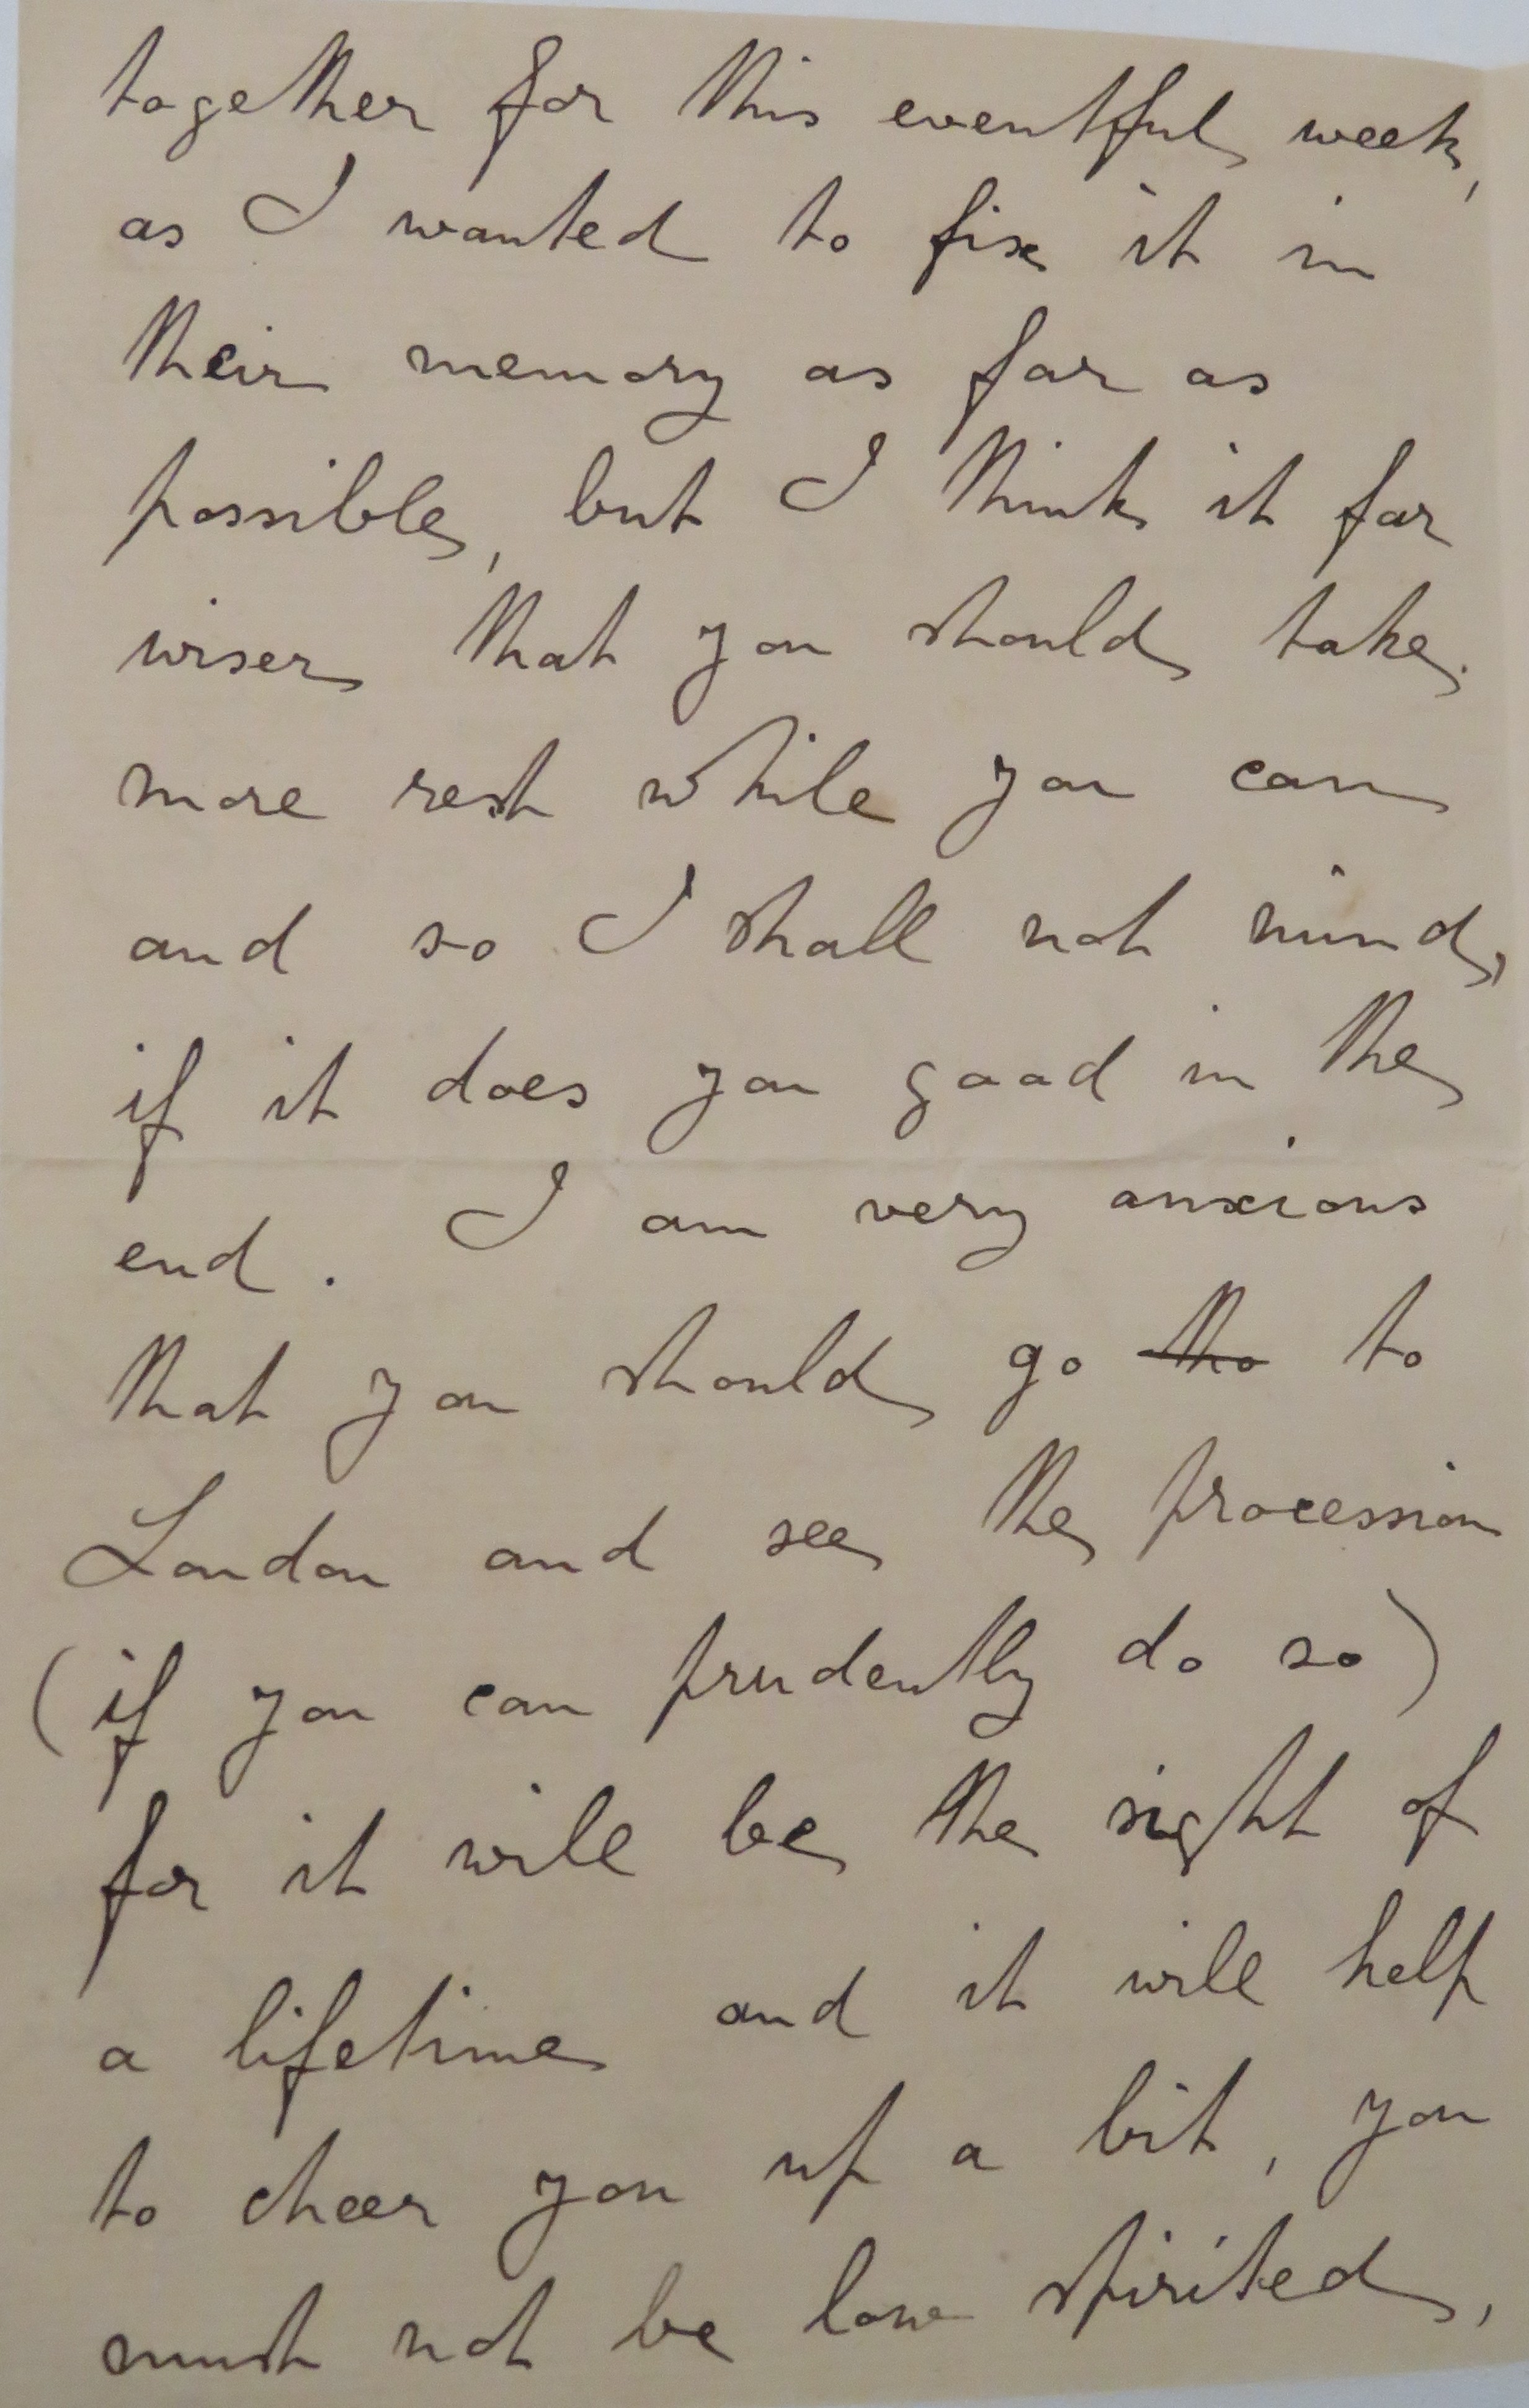 together for this eventful week,
as I wanted to fix it in
their memory as far as
possible, but I think it far
wiser that you should take
more rest while you can
and so I shall not mind,
if it does you good in the
end. I am very anxious
that you should go tho to
London and see the procession
(if you can prudently do so)
for it will be the sight of
a lifetime and it will help
to cheer you up a bit, you
must not be low spirited,